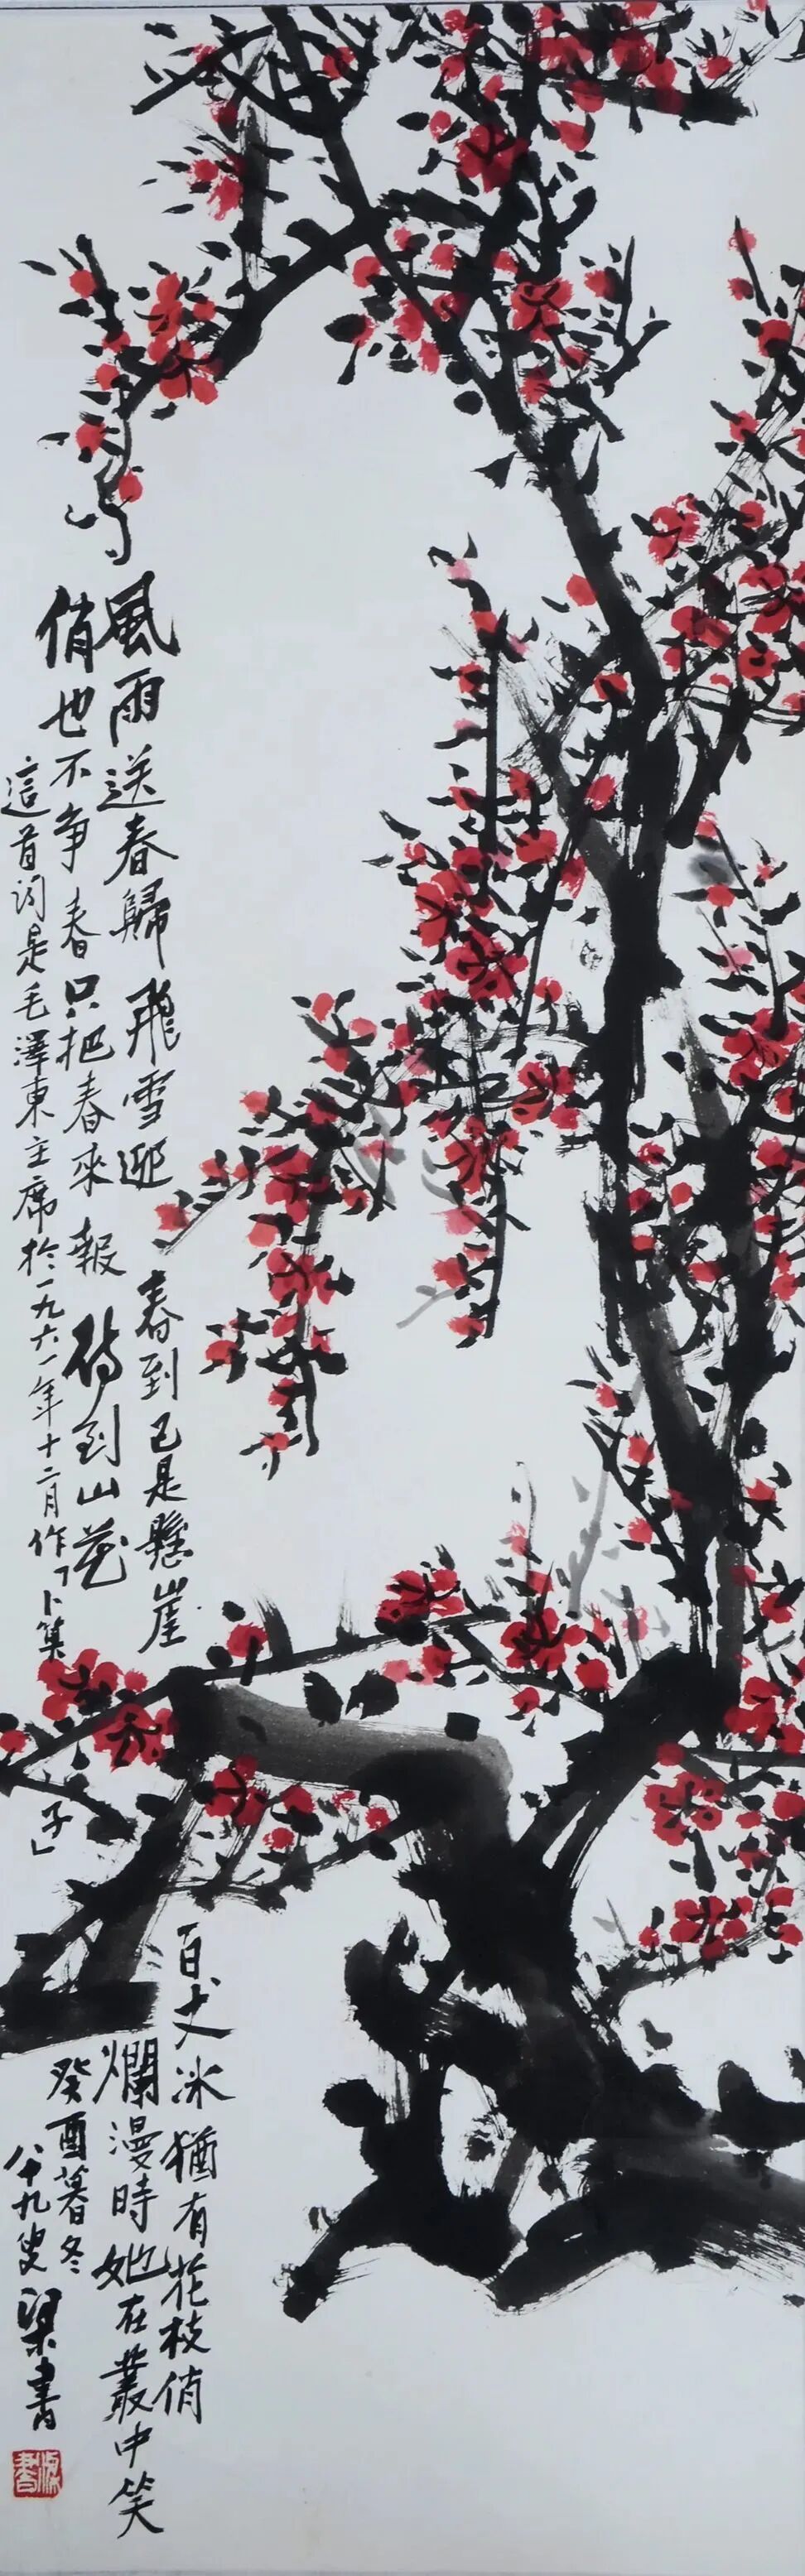 風雨送春歸飛雪迎春到已是懸崖百丈冰猶有花枝俏
俏也不争春只把春來報待到山花爛漫時她在叢中笑
這首詞是毛澤東主席於一九六一年十二月作「卜算子」
癸酉暮冬
八十九叟梁書